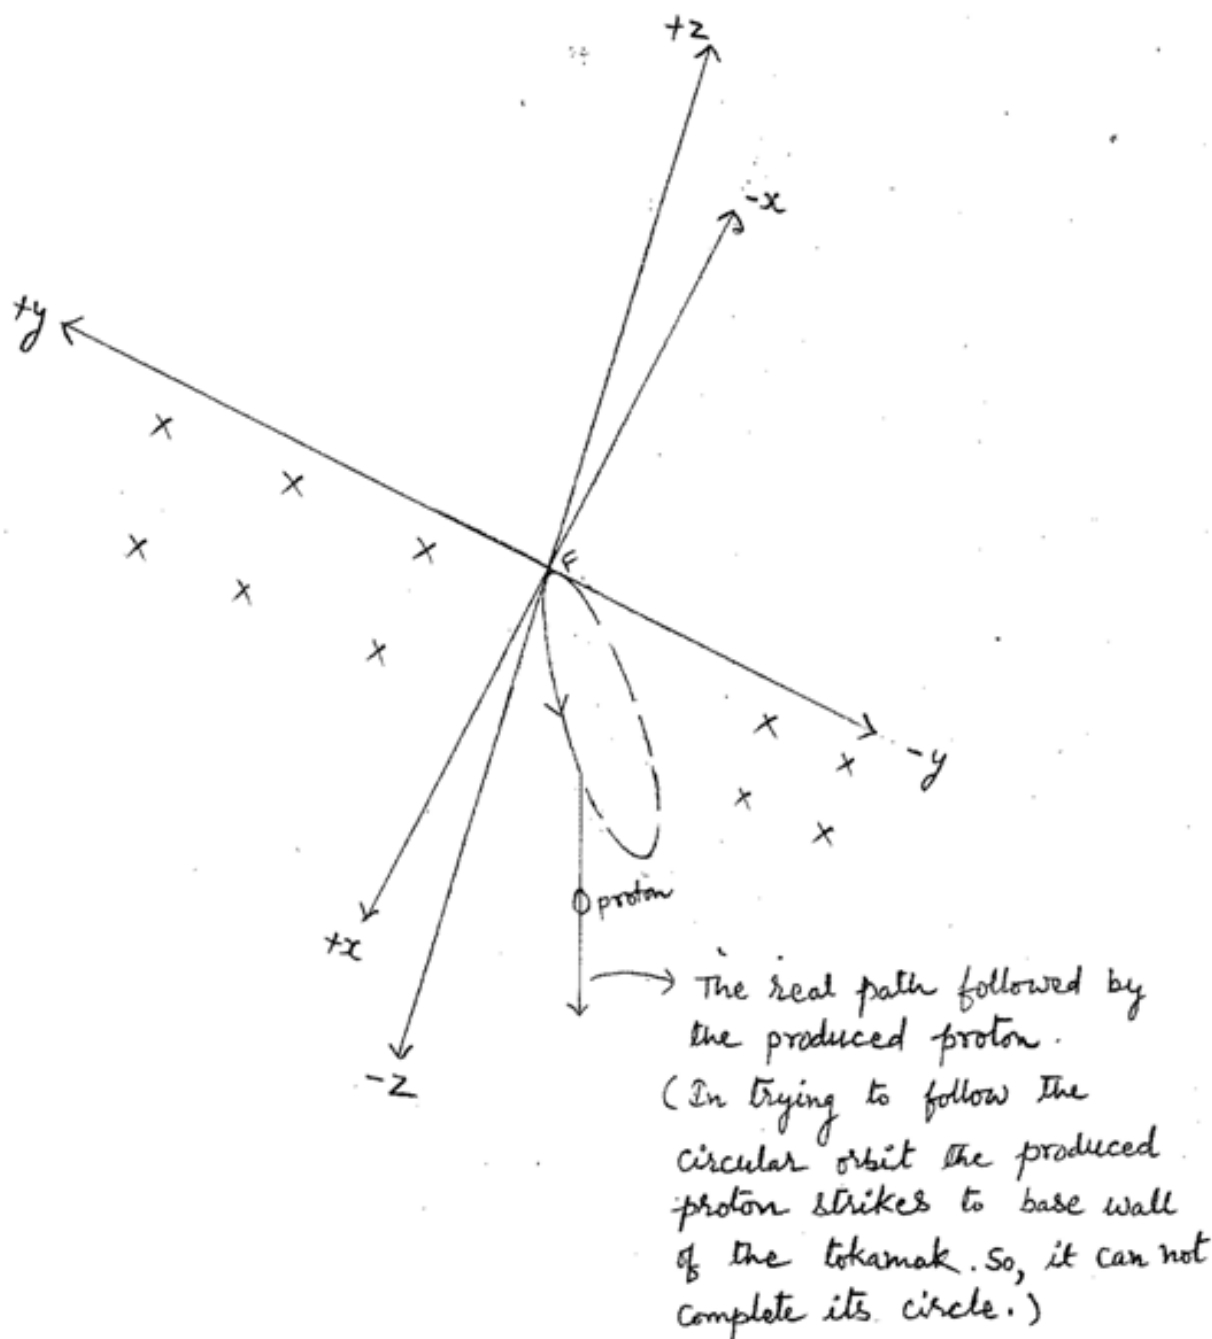 +z
-x
+y
F
-y
proton
+x
-z
The real path followed by
the produced proton.
(In trying to follow the
circular orbit the produced
proton strikes to base wall
of the tokamak. So, it can not
complete its circle.)